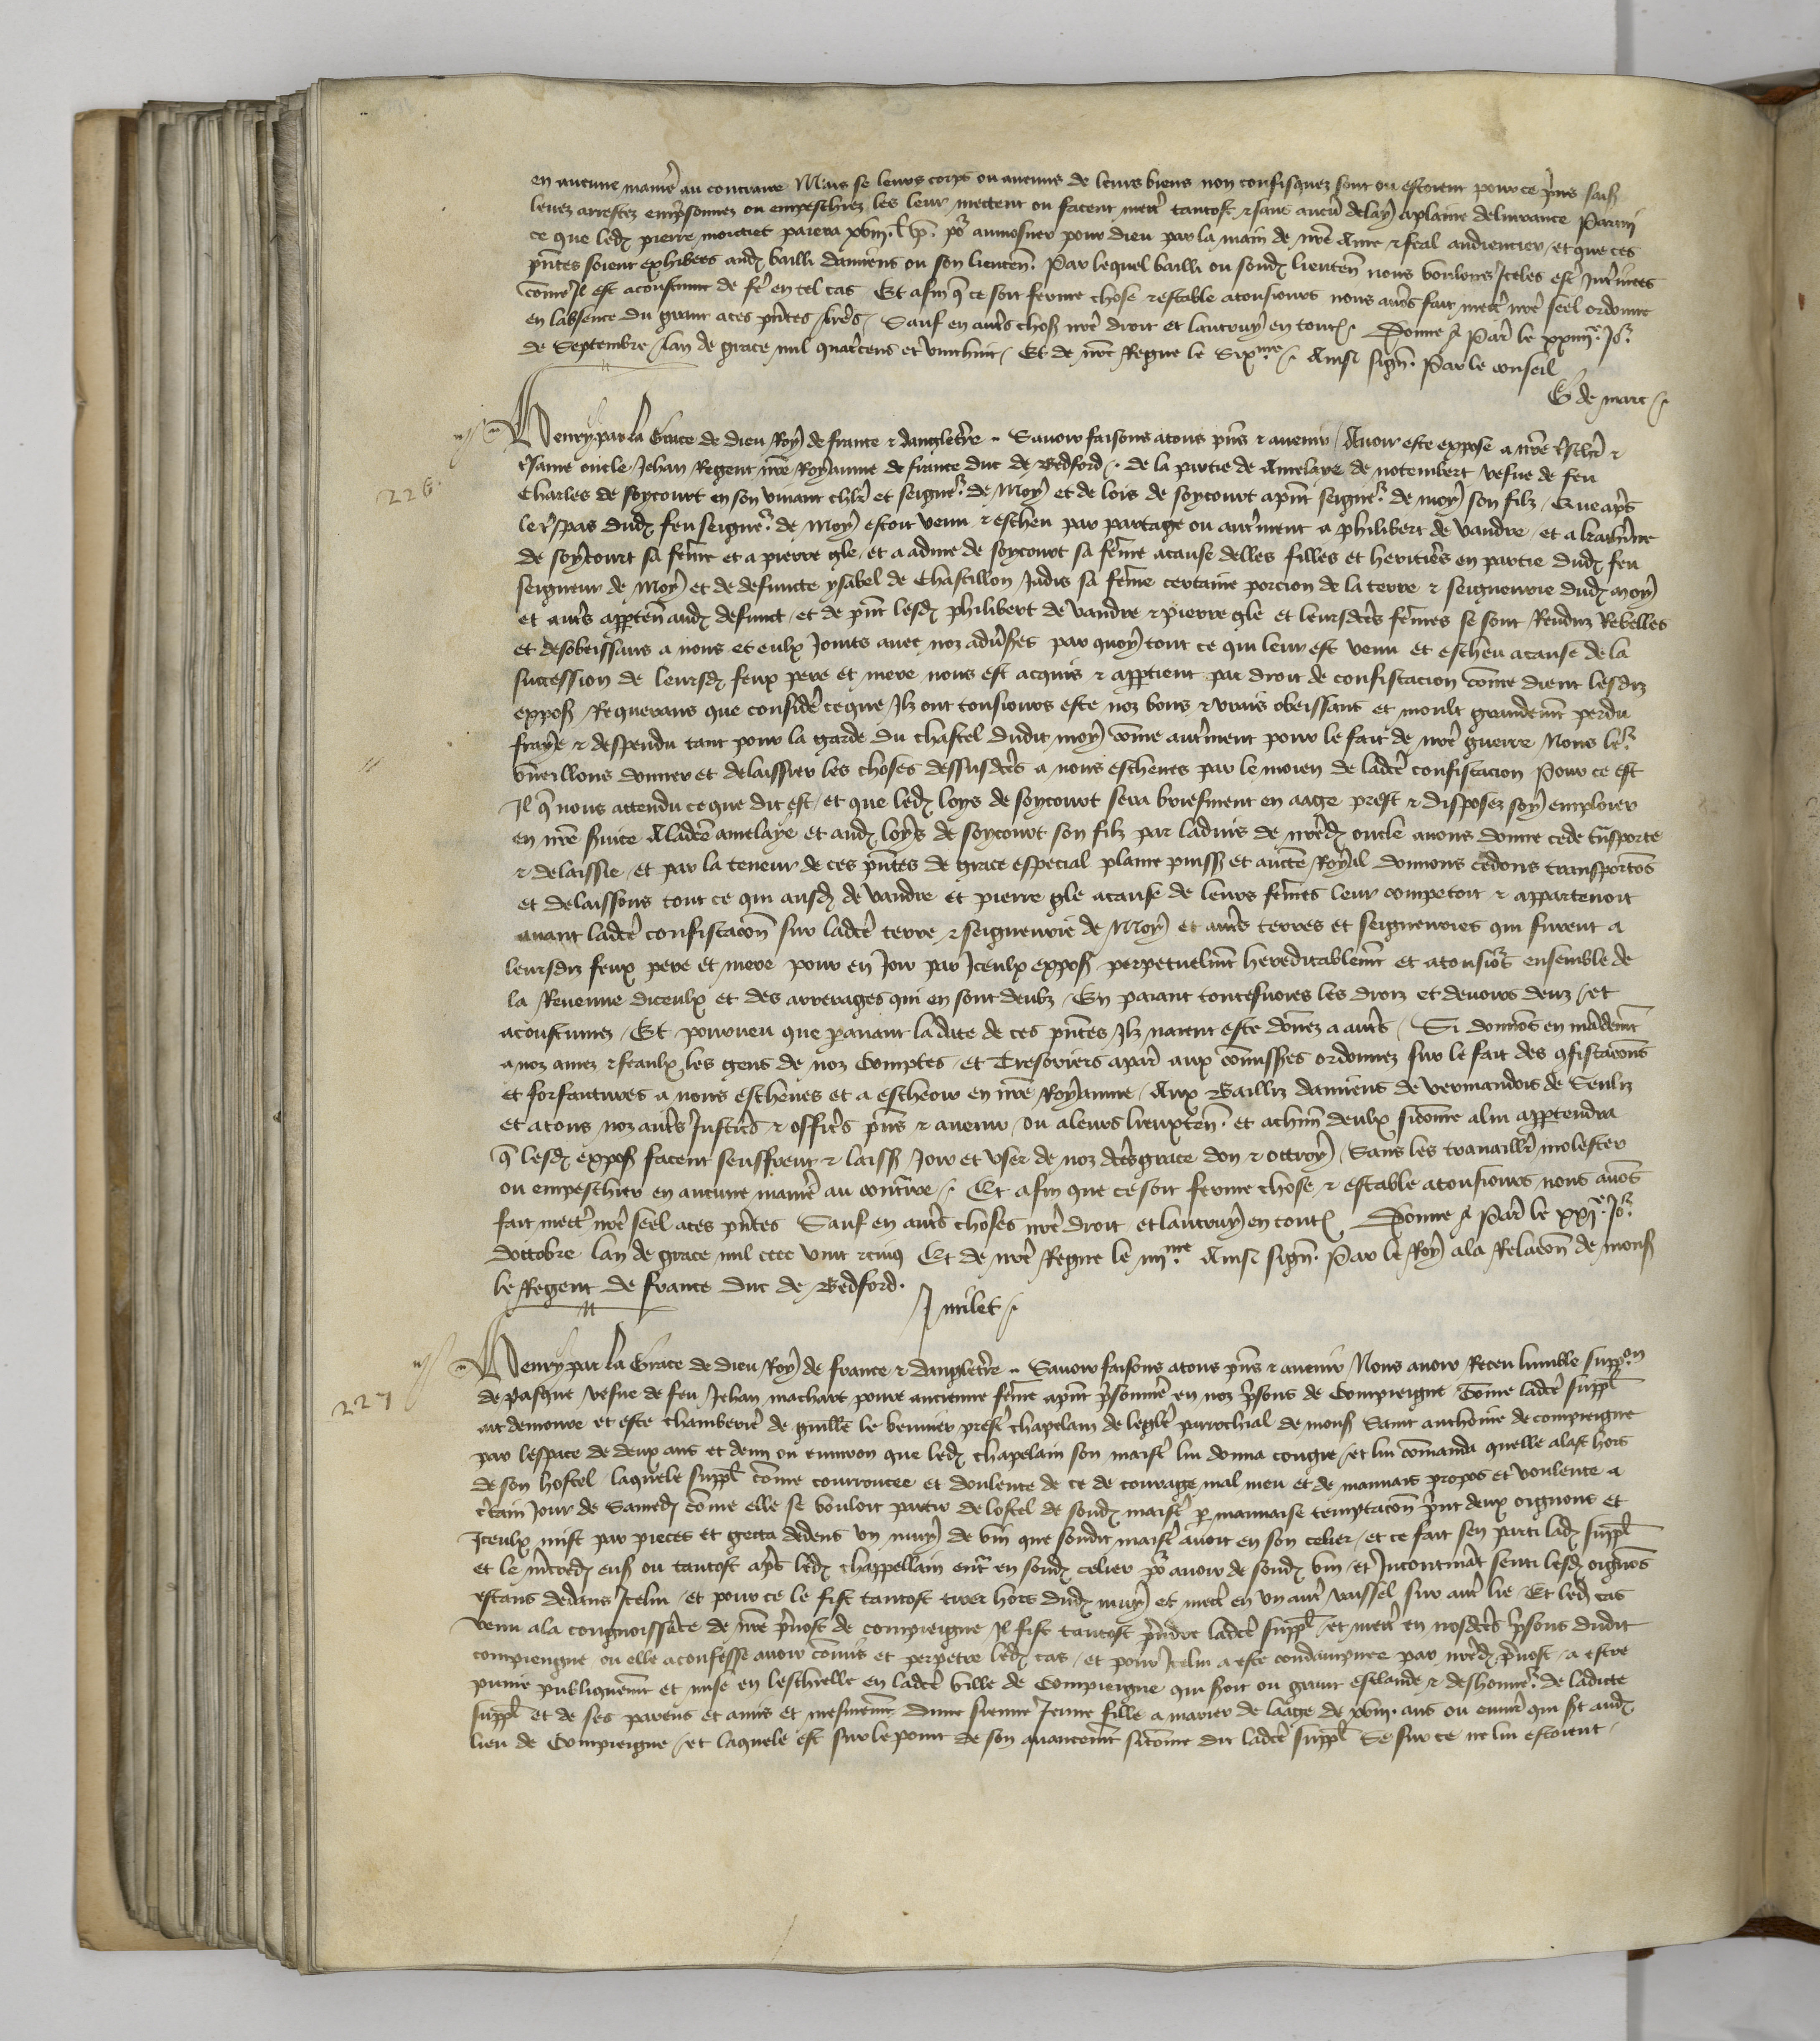 en aucune manie' au contraire Mais se leurs corps ou aucuns de leurs biens non confisquez sont ou estoient pour ce p'ns saisi
levez arrestez emp'sonnez ou empeschiez les leur mettent ou facent mett' tantost & sans aucu' delay a plaine delivrance Parmi
ce que led pierre morciet paiera xviii. l. p. po' aumosner pour dieu par la main de nre ame & feal audiencier / et que ces
pntes soient exhibees aud bailli damiens ou son lieuten. Par lequel bailli ou sond lieuten nous voulons Iceles est' int'inees
come Il est acoustume de fe' en tel cas Et afin q ce soit ferme chose & estable a tousiours nous avos fait mett' nre seel ordonne
en labsence du grant a ces pntes lres / Sauf en aut's chos nre droit et lautruy en tout Donne a Par' le xxiiii.e Jo.r
de Septembre / lan de grace mil quat'cens et vint huit / Et de nre Regne le Six.me / Ainsi sign. Par le conseil
G de marc
Henry par la Grace de dieu Roy de france & dangleterre .. Savoir faisons a tous pns & avenir / Avoir este expose a nre tsch' &
tsame oncle Jehan Regent nre Royaume de france duc de Bedford. de la partie de Amelaye de notembert vefve de feu
226.
Charles de soycourt en son vivant chlr et seigne.r de Moy et de lois de soycourt apnt seigne.r de moy son filz / Que ap's
le t'spas dud feu seigne.r de Moy estoit venu & escheu par partage ou aut'ment a philibert de vandre / et a kath'ine
de soycourt sa feme et a pierre gle / et a adme de soycourt sa feme acause delles filles et heritie's en partie dud feu
seigneur de Moy et de defuncte ysabel de Chastillon Jadis sa feme certaine porcion de la terre & seigneurie dud moy
et aut's apparten aud defunct / et de pnt lesd philibert de vandre & pierre gle et leursdtes femes se sont Renduz Rebelles
et desobeissans a nous et eulx Joins avec noz adv's'es par quoy tout ce qui leur est venu et escheu acause de la
succession de leursd feux pere et mere nous est acquis & appartient par droit de confiscacion come dient lesdiz
expos Requerans que consider' ce que Ilz ont tousiours este noz bons & vrais obeissans et moult grandemt perdu
fraye & despendu tant pour la garde du chastel dudit moy come aut'ment pour le fait de nre guerre Nous le.r
vueillons donner et delaissier les choses dessusdtes a nous escheues par le moien de ladte confiscacion Pour ce est
Il q nous attendu ce que dit est / et que led loys de soycourt sera briefment en aage prest & disposez soy emploier
en nre s'vice A ladte amelaye et aud loys de soycourt son filz par ladvis de nred oncle avons donne cede t'nsporte
& delaissie / et par la teneur de ces pntes de grace especial plaine puiss et aucte Royal donnons cedons transportons
et delaissons tout ce qui ausd de vandre et pierre gle acause de leurs femes leur competoit & appartenoit
avant ladte confiscacon sur ladte terre & seigneurie de Moy et aut's terres et seigneuries qui furent a
leursdiz feux pere et mere pour en Joir par Iceulx expos perpetuelmt hereditablemt et a tousio's ensemble de
la Revenue diceulx et des arrerages qui en sont deubz / En paiant toutesvoies les droiz et devoirs deuz / et
acoustumez / Et pourveu que p'avant la date de ces pntes Ilz naient este donez a aut's / Si donnos en mandemt
a noz amez & feaulx les gens de noz Comptes / et Tresoriers a par' aux comiss'es ordonnez sur le fait des 9fiscacons
et forfaitures a nous escheues et a escheoir en nre Royaume / Aux Bailliz damiens de vermandois de Senliz
et a tous noz aut's Justic's & offic's pns & avenir / ou a leurs lieuxten. et a chun deulx sicome a lui appartendra
q lesd expos facent seuffrent & laiss Joir et user de noz dtes grace don & ottroy / Sans les travaillr' molester
ou empeschier en aucune manie' au contraire / Et afin que ce soit ferme chose & estable a tousiours nous avos
fait mett' nre seel a ces pntes Sauf en aut's choses nre droit et lautruy en tout Donne a Par' le xxi.e Jo.r
doctobre lan de grace mil cccc vint & cinq Et de nre Regne le iiii.me Ainsi sign. Par le Roy a la Relacon de mons
le Regent de france duc de Bedford.
J milet
Henry par la Grace de dieu Roy de france & dangleterre .. Savoir faisons a tous pns & avenir Nous avoir Receu humble supp.on
227
de Pasque vefve de feu Jehan machart povre ancienne feme apnt p'sonnie' en noz p'sons de Compiengne Come ladte suppl
ait demoure et este chamberie' de guille le vennier prest' chapelain de leglise parrochial de mons Saint anthoine de compiengne
par lespace de deux ans et demi ou environ que led chapelain son maist' lui donna congie / et lui comanda quelle alast hors
de son hostel laquele suppl come courroucee et doulente de ce de courage mal meu et de mauvais propos et voulente a
c'tain Jour de Samed come elle se vouloit partir de lostel de sond maist' p mauvaise temptacon print deux oignons et
Iceulx mist par pieces et gecta dedens un muy de vin que sondit maist' avoit en son celier / et ce fait sen parti lad suppl
et le m'cred ens ou tantost ap's led chappellain ent' en sond celier po' avoir de sond vin / et Incontinat senti lesd oignons
estans dedans Icelui / et pour ce le fist tantost tirer hors dud muy et mett' en un aut' vaissel sur aut' lie Et led cas
venu a la congnoissace de nre p'vost de compiengne Il fist tantost p'ndre ladte suppl / et mett' en nosdtes p'sons dudit
compiengne ou elle a confesse avoir comis et perpetre led cas / et pour Icelui a este condampnee par nred p'vost / a estre
punie publiquemt et mise en leschielle en ladte ville de Compiengne qui s'oit ou grant esclande & deshonne.r de ladicte
suppl et de ses parens et amis et mesmemt dune sienne Jeune fille a marier de laage de xviii. ans ou envir' qui est aud
lieu de Compiengne / et laquele est sur le point de son avancemt sicome dit ladte suppl Se sur ce ne lui estoient